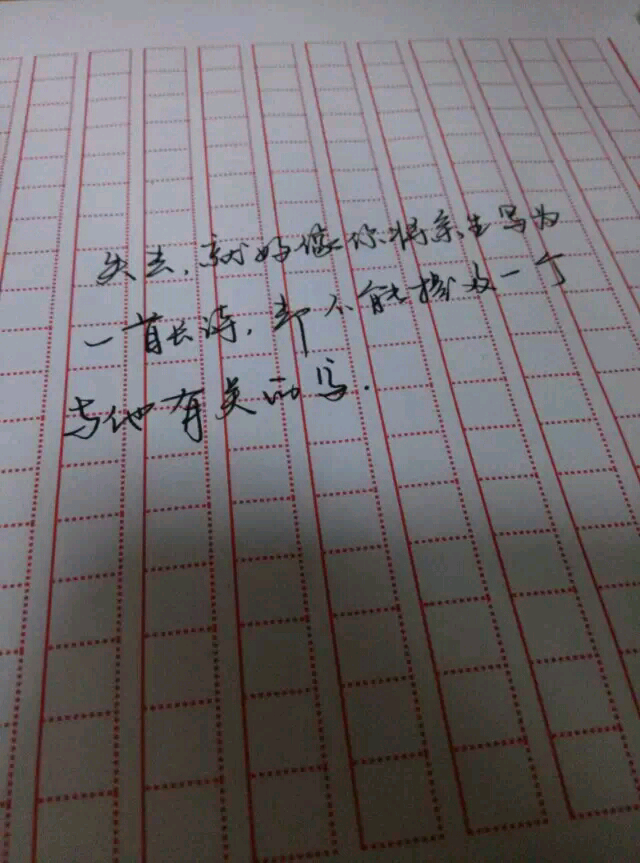 失去,就好像你将余生写为
一首长诗,却不能提及一个
与他有关的字.